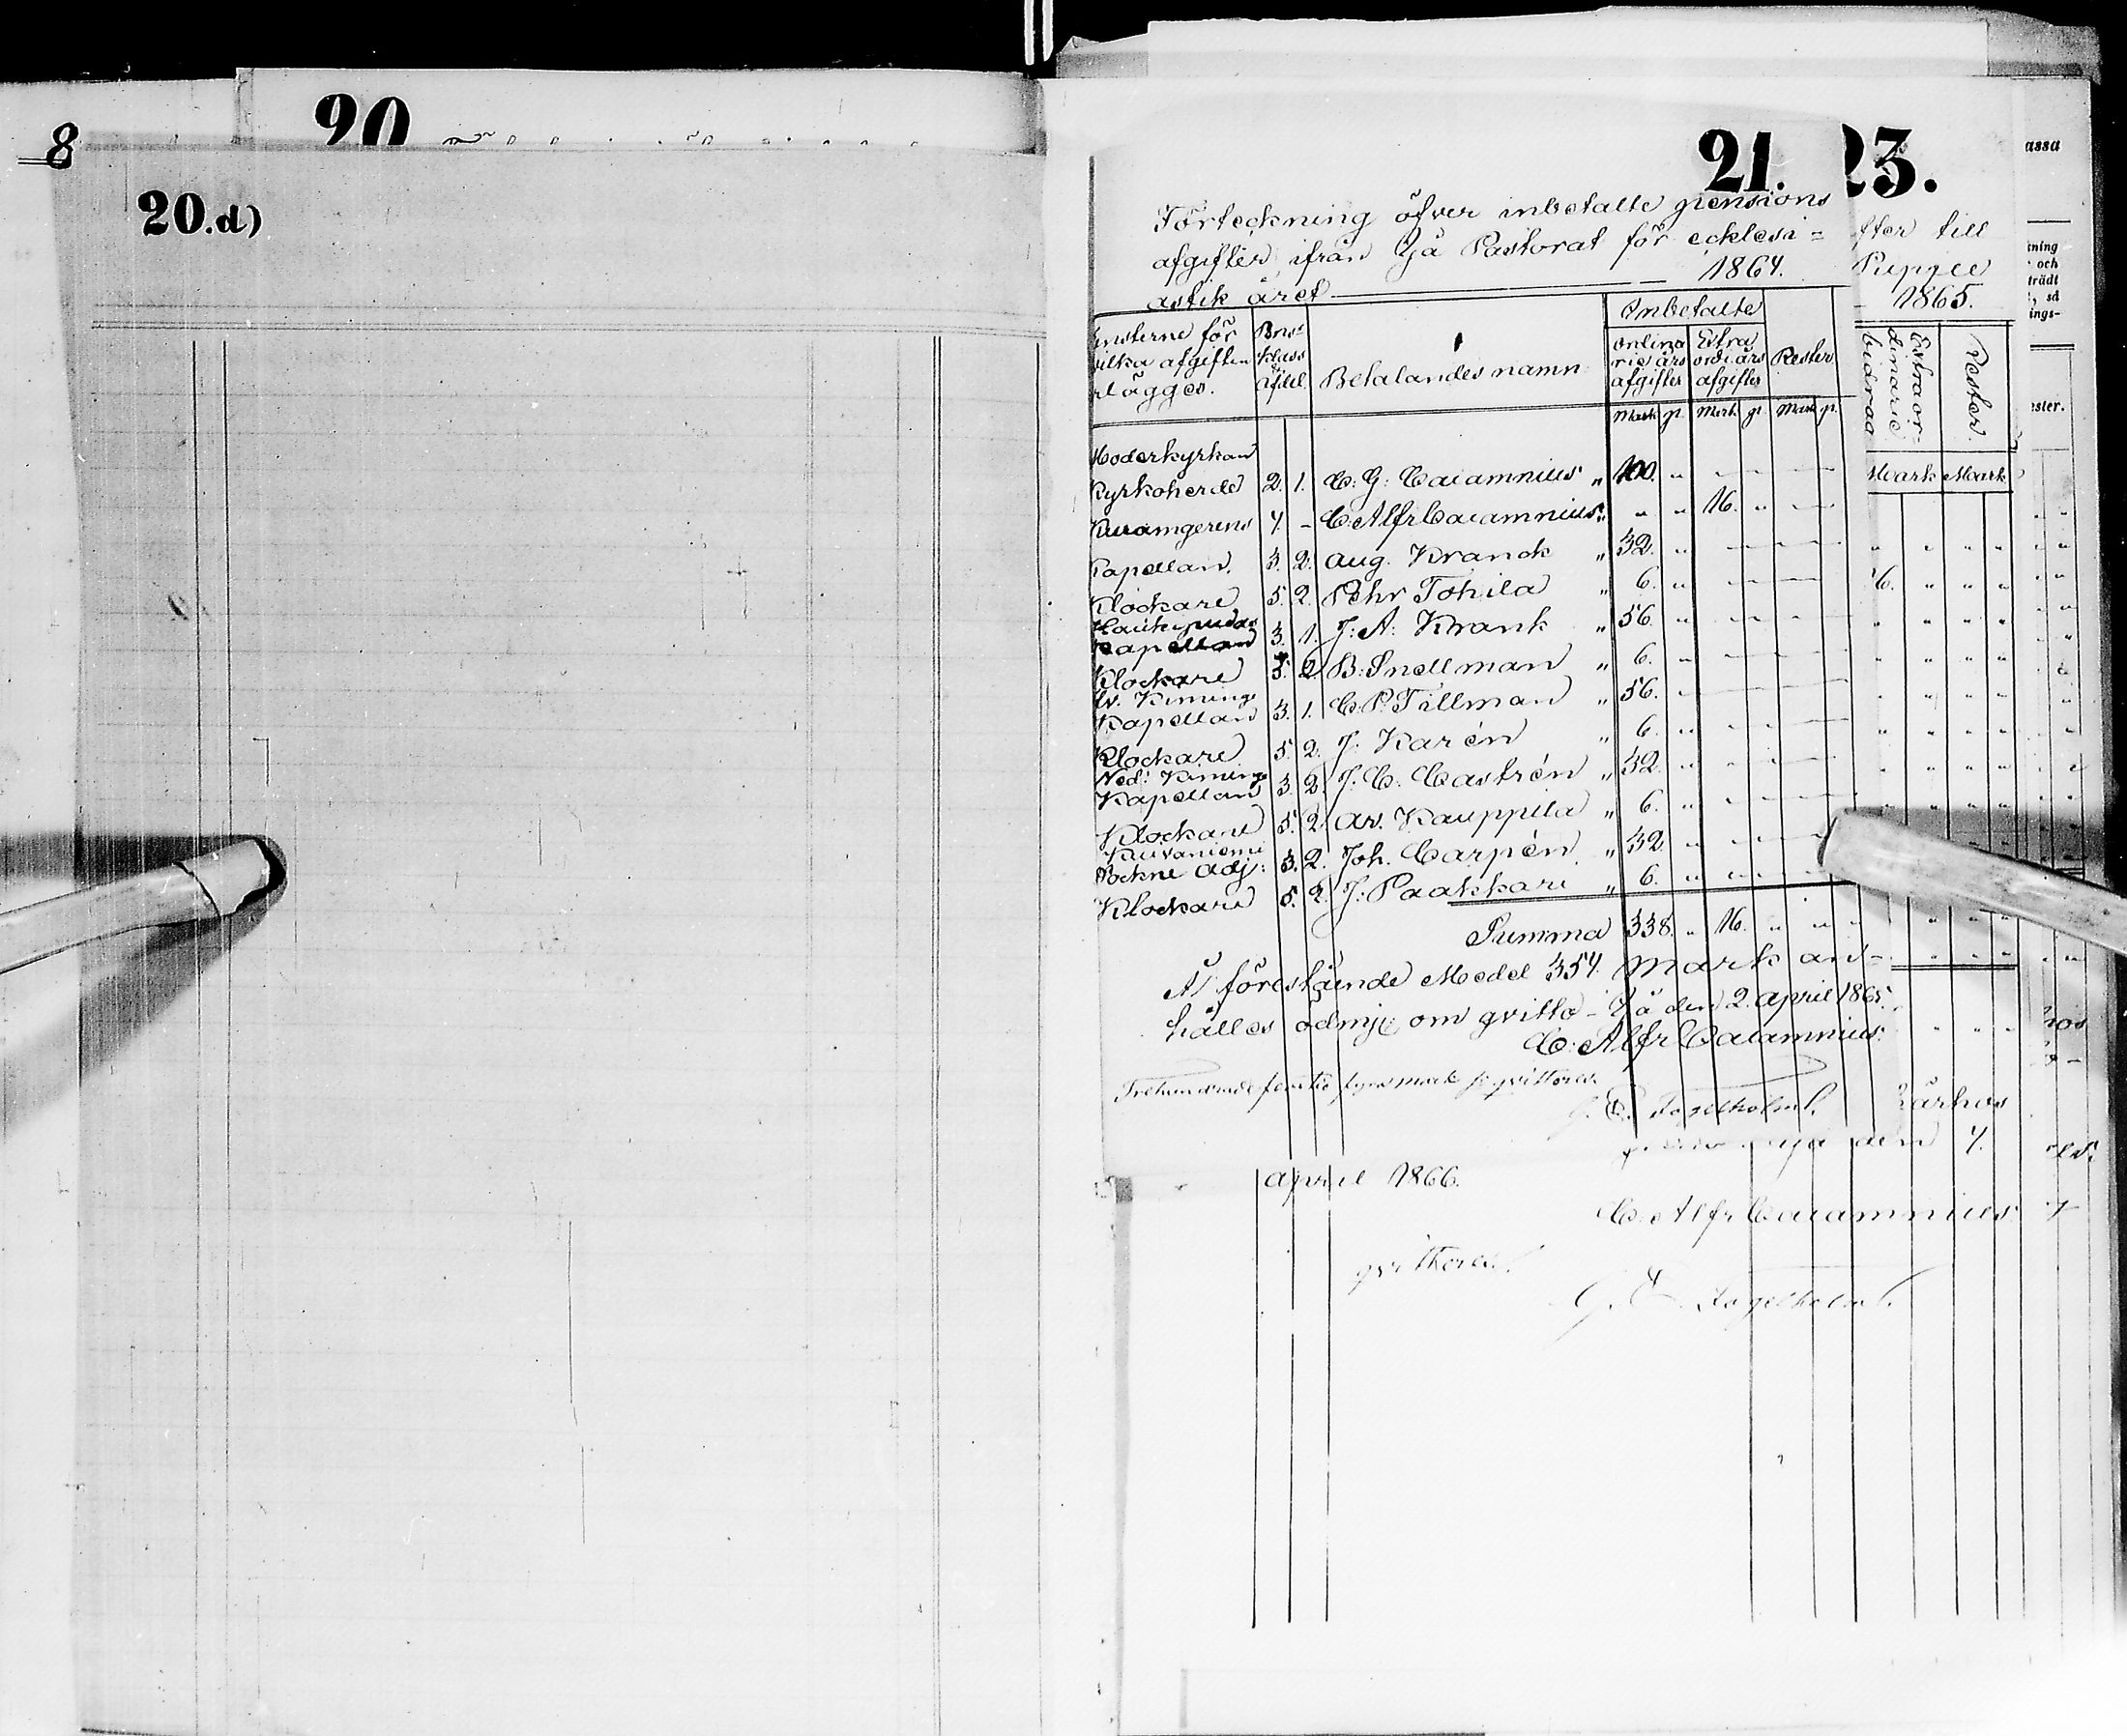 8
20
20.d)
21.
23.
assa
Förteckning öfver inbetalte pensions
afgifter ifrån Ijå Pastorat för ecklesi=
astik året 1864.
fter till
Puppee
1865.
tning
och
trädt
, så
ings-
ester.
ensterne för
vilka afgiften
rlägges.
klass
Betalandes namn
Inbetalte
ordina
rie års
afgifter
Extra
ordi: års
afgifter
Rester
Mark p. Mark p. Mark p.
Extraor-
dinarie
bidrag
Rester
Mark Mark
Moderkyrkan
Kyrkoherde 2. 1. C: G: Calamnius " 100. "
C: Alfr Calamnius " " " 16. "
Kapellan 3. 2. Aug. Kranck " 32. "
Klockare 5. 2. Pehr Tohila " 6. "
Haukipudas
Kapellan 3. 1. J: A: Krank " 56. "
Klockare 5. 2. B: Snellman " 6. "
Öv. Kiminge
Kapellan 3. 1. C. P. Tillman " 56.
Klockare 5. 2. J. Karén " 6. "
Ned: Kiminge
Kapellan 3. 2. J. C. Castrén " 32. "
Klockare 5. 2. Av. Kauppila " 6. "
Kuivaniemi
Sockne Adj: 3. 2. Joh. Carpén " 32. "
Klockare 5. 2. J: Paakkari " 6. "
Summa 338. " 16. " " "
Å föreståënde Medel 354. mark an-
hålles ödmj: om qvitto - Ijå den 2. April 1865.
C: Alfr Calamnius
Trehundrade femtio fyra mark qvitteras
Fogelholm
Ijå den 7.
April 1866.
C. Alfr Calamnius
qvitteras.
Fogelholm.